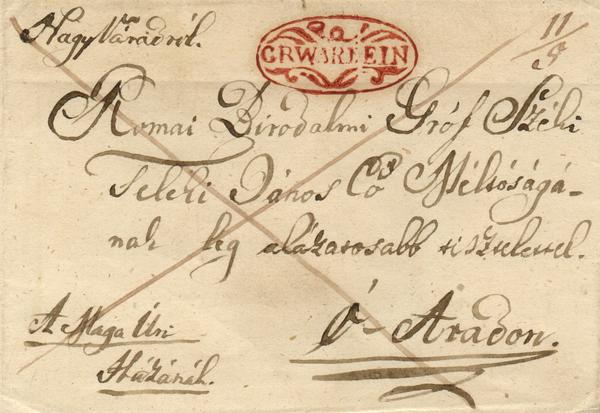 Nagy Váradról.
GRWARDEIN
11/9
Romai Birodalmi Gróf Széki
Teleki János Eő Méltóságá-
nak leg alázatosabb tisztelettel.
A Maga Úri
Házánál.
Ó-Aradon.